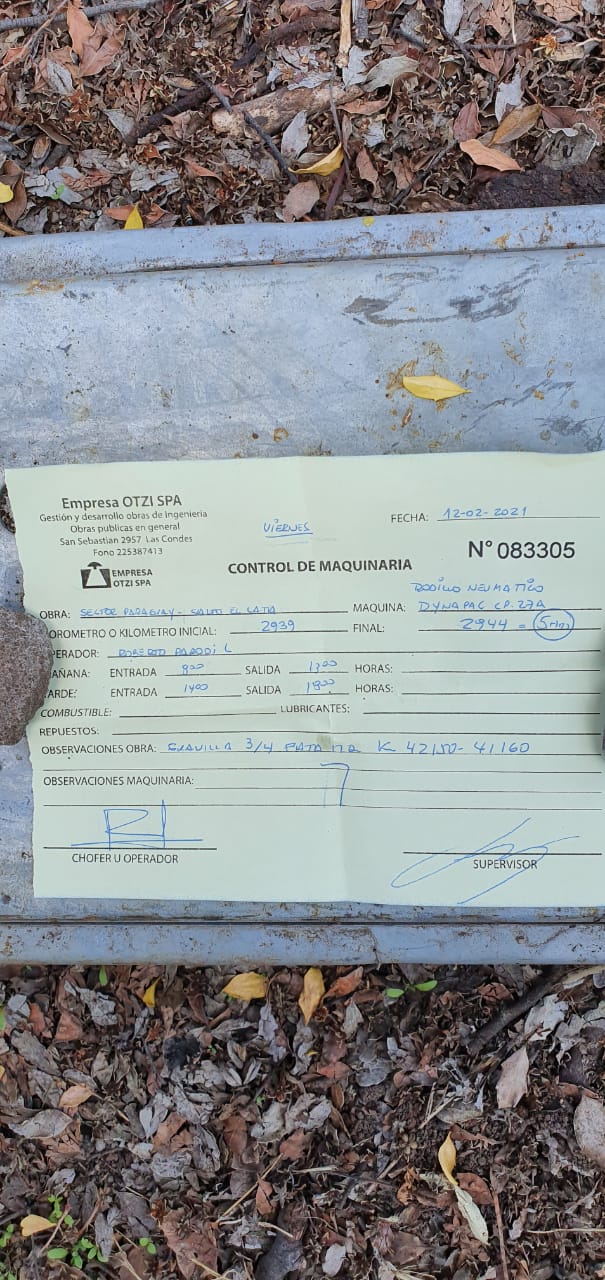 Empresa OTZI SPA
Gestión y desarrollo obras de ingenieria
Obras publicas en general
San Sebastian 2957 Las Condes
Fono 225387413
EMPRESA
OTZI SPA
VIERNES
FECHA: 12-02-2021
N° 083305
CONTROL DE MAQUINARIA
RODILLO NEUMATICO
OBRA: SECTOR PARAGUAY - SALTO EL MAQUINA: DYNAPAC CP.27A
OROMETRO O KILOMETRO INICIAL: 2939 FINAL: 2944 = 5
PERADOR: ROBERTO PARODI L
AÑANA: ENTRADA 800 SALIDA 1300 HORAS:
ARDE: ENTRADA 1400 SALIDA 1800 HORAS:
COMBUSTIBLE: LUBRICANTES:
REPUESTOS:
OBSERVACIONES OBRA: GRAVILLA 3/4 K 42150-41160
OBSERVACIONES MAQUINARIA:
CHOFER U OPERADOR
SUPERVISOR